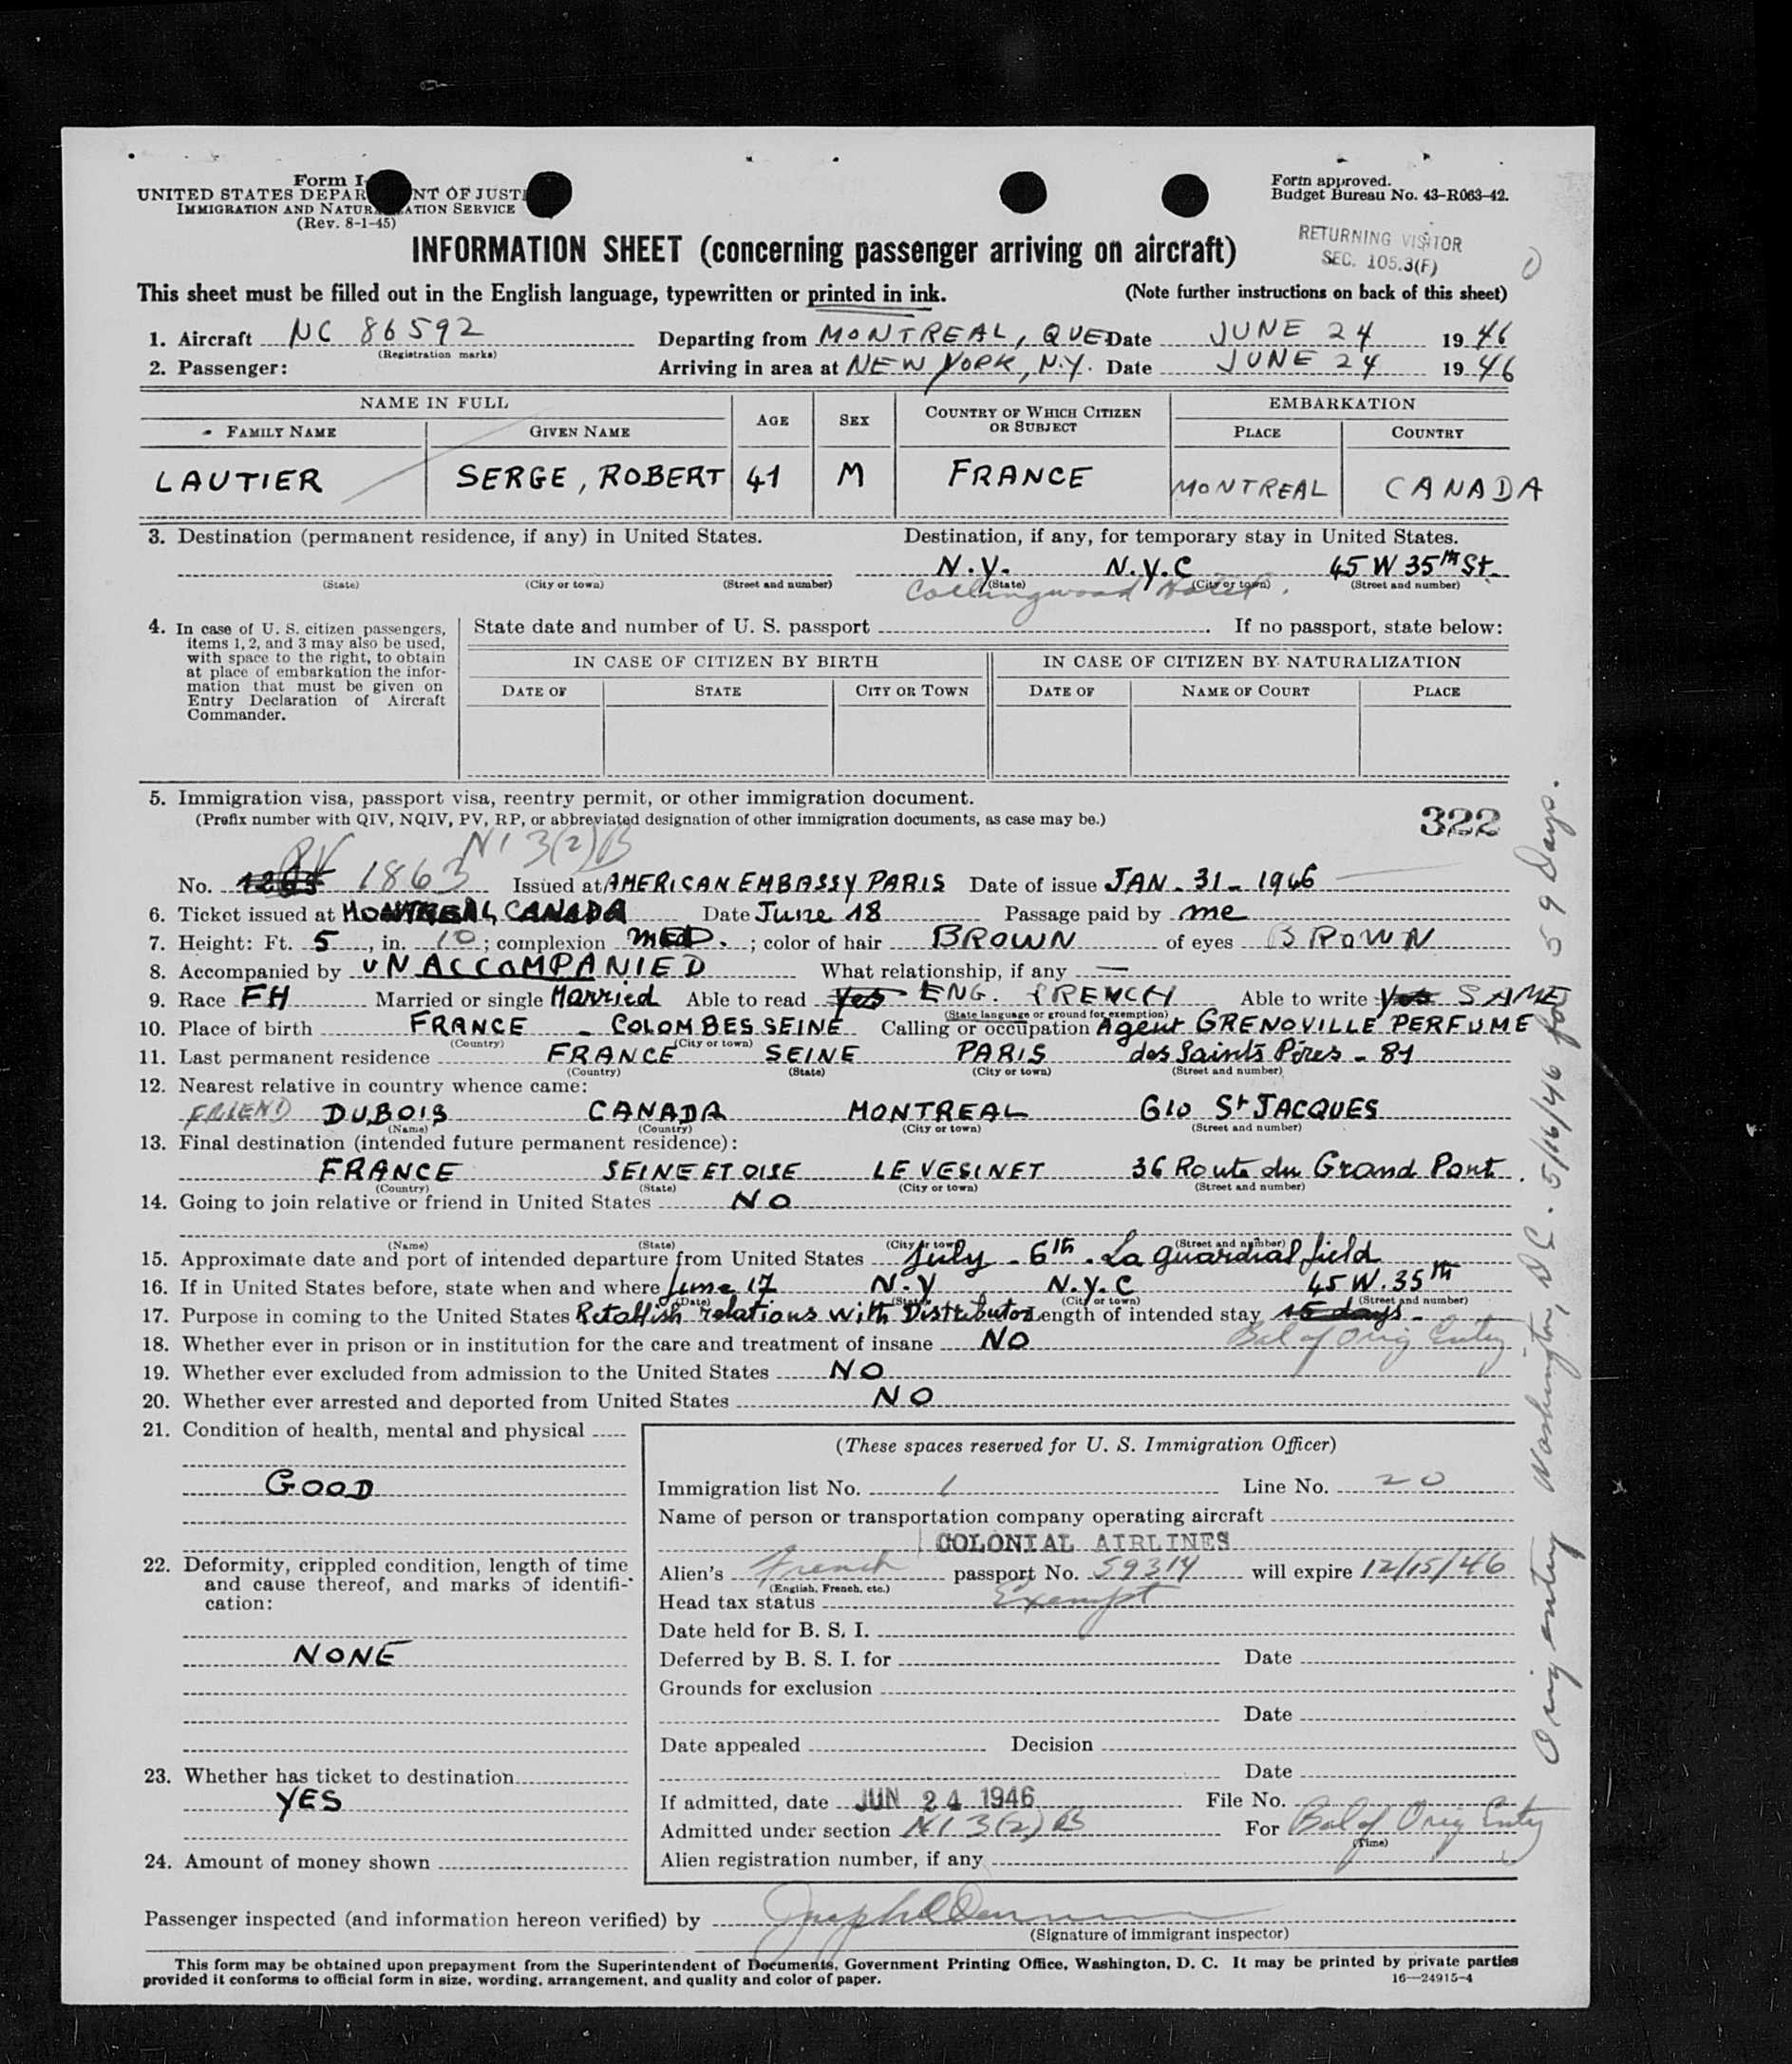 Form I-
UNITED STATES DEPAR NT OF JUSTI
IMMIGRATION AND NATUR ATION SERVICE
(Rev. 8-1-45)
Form approved.
Budget Bureau No. 43-R063-42.
INFORMATION SHEET (concerning passenger arriving on aircraft)
RETURNING VISITOR
SEC. 105.3(F)
This sheet must be filled out in the English language, typewritten or printed in ink. (Note further instructions on back of this sheet)
1. Aircraft NC 86592 Departing from MONTREAL, QUE Date JUNE 24 1946
(Registration marks)
2. Passenger: Arriving in area at NEW YORK, N.Y. Date JUNE 24 1946
NAME IN FULL AGE SEX COUNTRY OF WHICH CITIZEN OR SUBJECT EMBARKATION
FAMILY NAME GIVEN NAME PLACE COUNTRY
LAUTIER SERGE, ROBERT 41 M FRANCE MONTREAL CANADA
3. Destination (permanent residence, if any) in United States. Destination, if any, for temporary stay in United States.
N.Y. N.Y.C 45 W 35th St.
(State) (City or town) (Street and number) (State) (City or town) (Street and number)
Collingwood Hotel.
4. In case of U. S. citizen passengers, items 1, 2, and 3 may also be used, with space to the right, to obtain at place of embarkation the information that must be given on Entry Declaration of Aircraft Commander.
State date and number of U. S. passport . If no passport, state below:
IN CASE OF CITIZEN BY BIRTH IN CASE OF CITIZEN BY NATURALIZATION
DATE OF STATE CITY OR TOWN DATE OF NAME OF COURT PLACE
5. Immigration visa, passport visa, reentry permit, or other immigration document.
(Prefix number with QIV, NQIV, PV, RP, or abbreviated designation of other immigration documents, as case may be.)
322
PV NI 3(2)B
No. 1863 Issued at AMERICAN EMBASSY PARIS Date of issue JAN - 31 - 1946
6. Ticket issued at MONTREAL, CANADA Date June 18 Passage paid by me
7. Height: Ft. 5, in. 10; complexion MED.; color of hair BROWN of eyes BROWN
8. Accompanied by UNACCOMPANIED What relationship, if any —
9. Race FH Married or single Married Able to read Yes ENG. FRENCH Able to write Yes SAME
(State language or ground for exemption)
10. Place of birth FRANCE - COLOMBES SEINE Calling or occupation Agent GRENOVILLE PERFUME
(Country) (City or town)
11. Last permanent residence FRANCE SEINE PARIS des Saints Pères - 81
(Country) (State) (City or town) (Street and number)
12. Nearest relative in country whence came:
FRIEND DUBOIS CANADA MONTREAL 610 St JACQUES
(Name) (Country) (City or town) (Street and number)
13. Final destination (intended future permanent residence):
FRANCE SEINE ET OISE LE VESINET 36 Route du Grand Pont.
(Country) (State) (City or town) (Street and number)
14. Going to join relative or friend in United States NO
(Name) (State) (City or town) (Street and number)
15. Approximate date and port of intended departure from United States July - 6th. La guardial field
16. If in United States before, state when and where June 17 N.Y N.Y.C 45 W. 35th
(Date) (State) (City or town) (Street and number)
17. Purpose in coming to the United States Retablish relations with Distributor Length of intended stay 15 days -
Bal of Orig Entry
18. Whether ever in prison or in institution for the care and treatment of insane NO
19. Whether ever excluded from admission to the United States NO
20. Whether ever arrested and deported from United States NO
21. Condition of health, mental and physical
GOOD
22. Deformity, crippled condition, length of time and cause thereof, and marks of identification:
NONE
23. Whether has ticket to destination
YES
24. Amount of money shown
(These spaces reserved for U. S. Immigration Officer)
Immigration list No. 1 Line No. 20
Name of person or transportation company operating aircraft
COLONIAL AIRLINES
Alien's French passport No. 59314 will expire 12/15/46
(English, French, etc.)
Head tax status Exempt
Date held for B. S. I.
Deferred by B. S. I. for Date
Grounds for exclusion
Date
Date appealed Decision
Date
If admitted, date JUN 24 1946 File No.
Admitted under section NI 3(2)B For Bal of Orig Entry
(Time)
Alien registration number, if any
Passenger inspected (and information hereon verified) by
(Signature of immigrant inspector)
This form may be obtained upon prepayment from the Superintendent of Documents, Government Printing Office, Washington, D. C. It may be printed by private parties
provided it conforms to official form in size, wording, arrangement, and quality and color of paper. 16—24915-4
Orig entry Washington, DC. 5/16/46 for 59 Days.